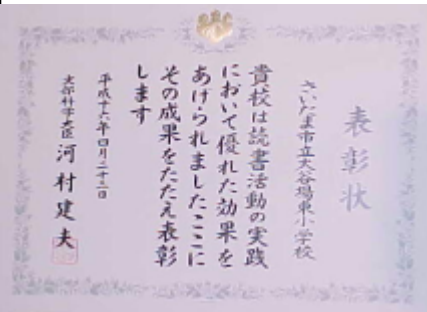 表彰状
さいたま市立大谷場東小学校
貴校は読書活動の実践
において優れた効果を
あげられましたここに
その成果をたたえ表彰
します
平成十六年四月二十三日
文部科学大臣 河村建夫